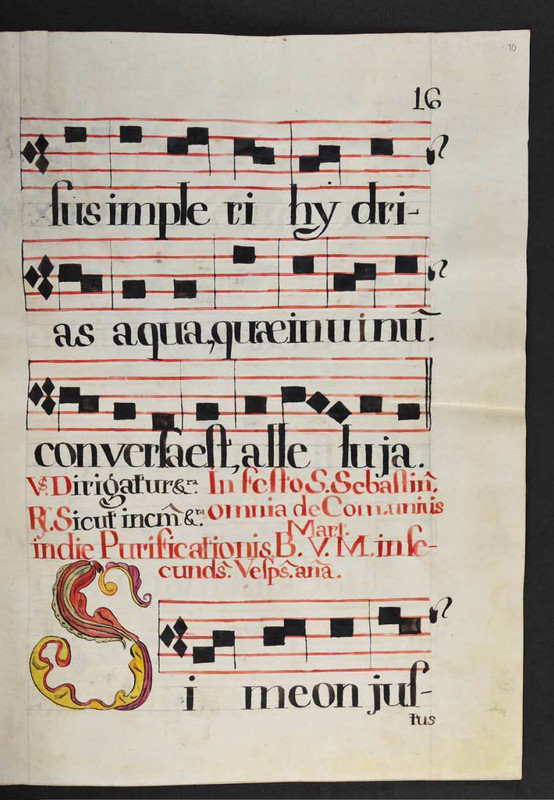 10
16
ſus imple ri hy dri-
as aqua, quæ in uinū.
converſa eſt, alle luja.
℣. Dirigatur &c. In feſto S. Sebaſtin̄.
℟. Sicut incm̄ &c. omnia de Comunius
Mart.
in die Purificationis B. V. M. in ſe-
cunds. Veſps. ana.
Si meon juſ-
tus